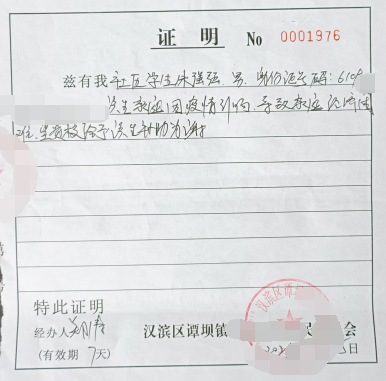 证明 No 0001976
兹有我社区学生朱强强 男 身份证号码:610
该生家庭因疫情影响,导致家庭经济困
难,望贵校给予该生补助为谢
特此证明
经办人
汉滨区谭坝镇 民 会
(有效期 7天) 日
汉滨区谭坝